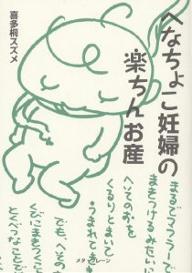 へなちょこ妊婦の
楽ちんお産
喜多桐スズメ
まるでマフラーで
まきつけるみたい
へそのおを
くるりとまいて
うまれてき
でも、へその
くびにまきつくこ
とくべつなことで
メタ・ブレーン